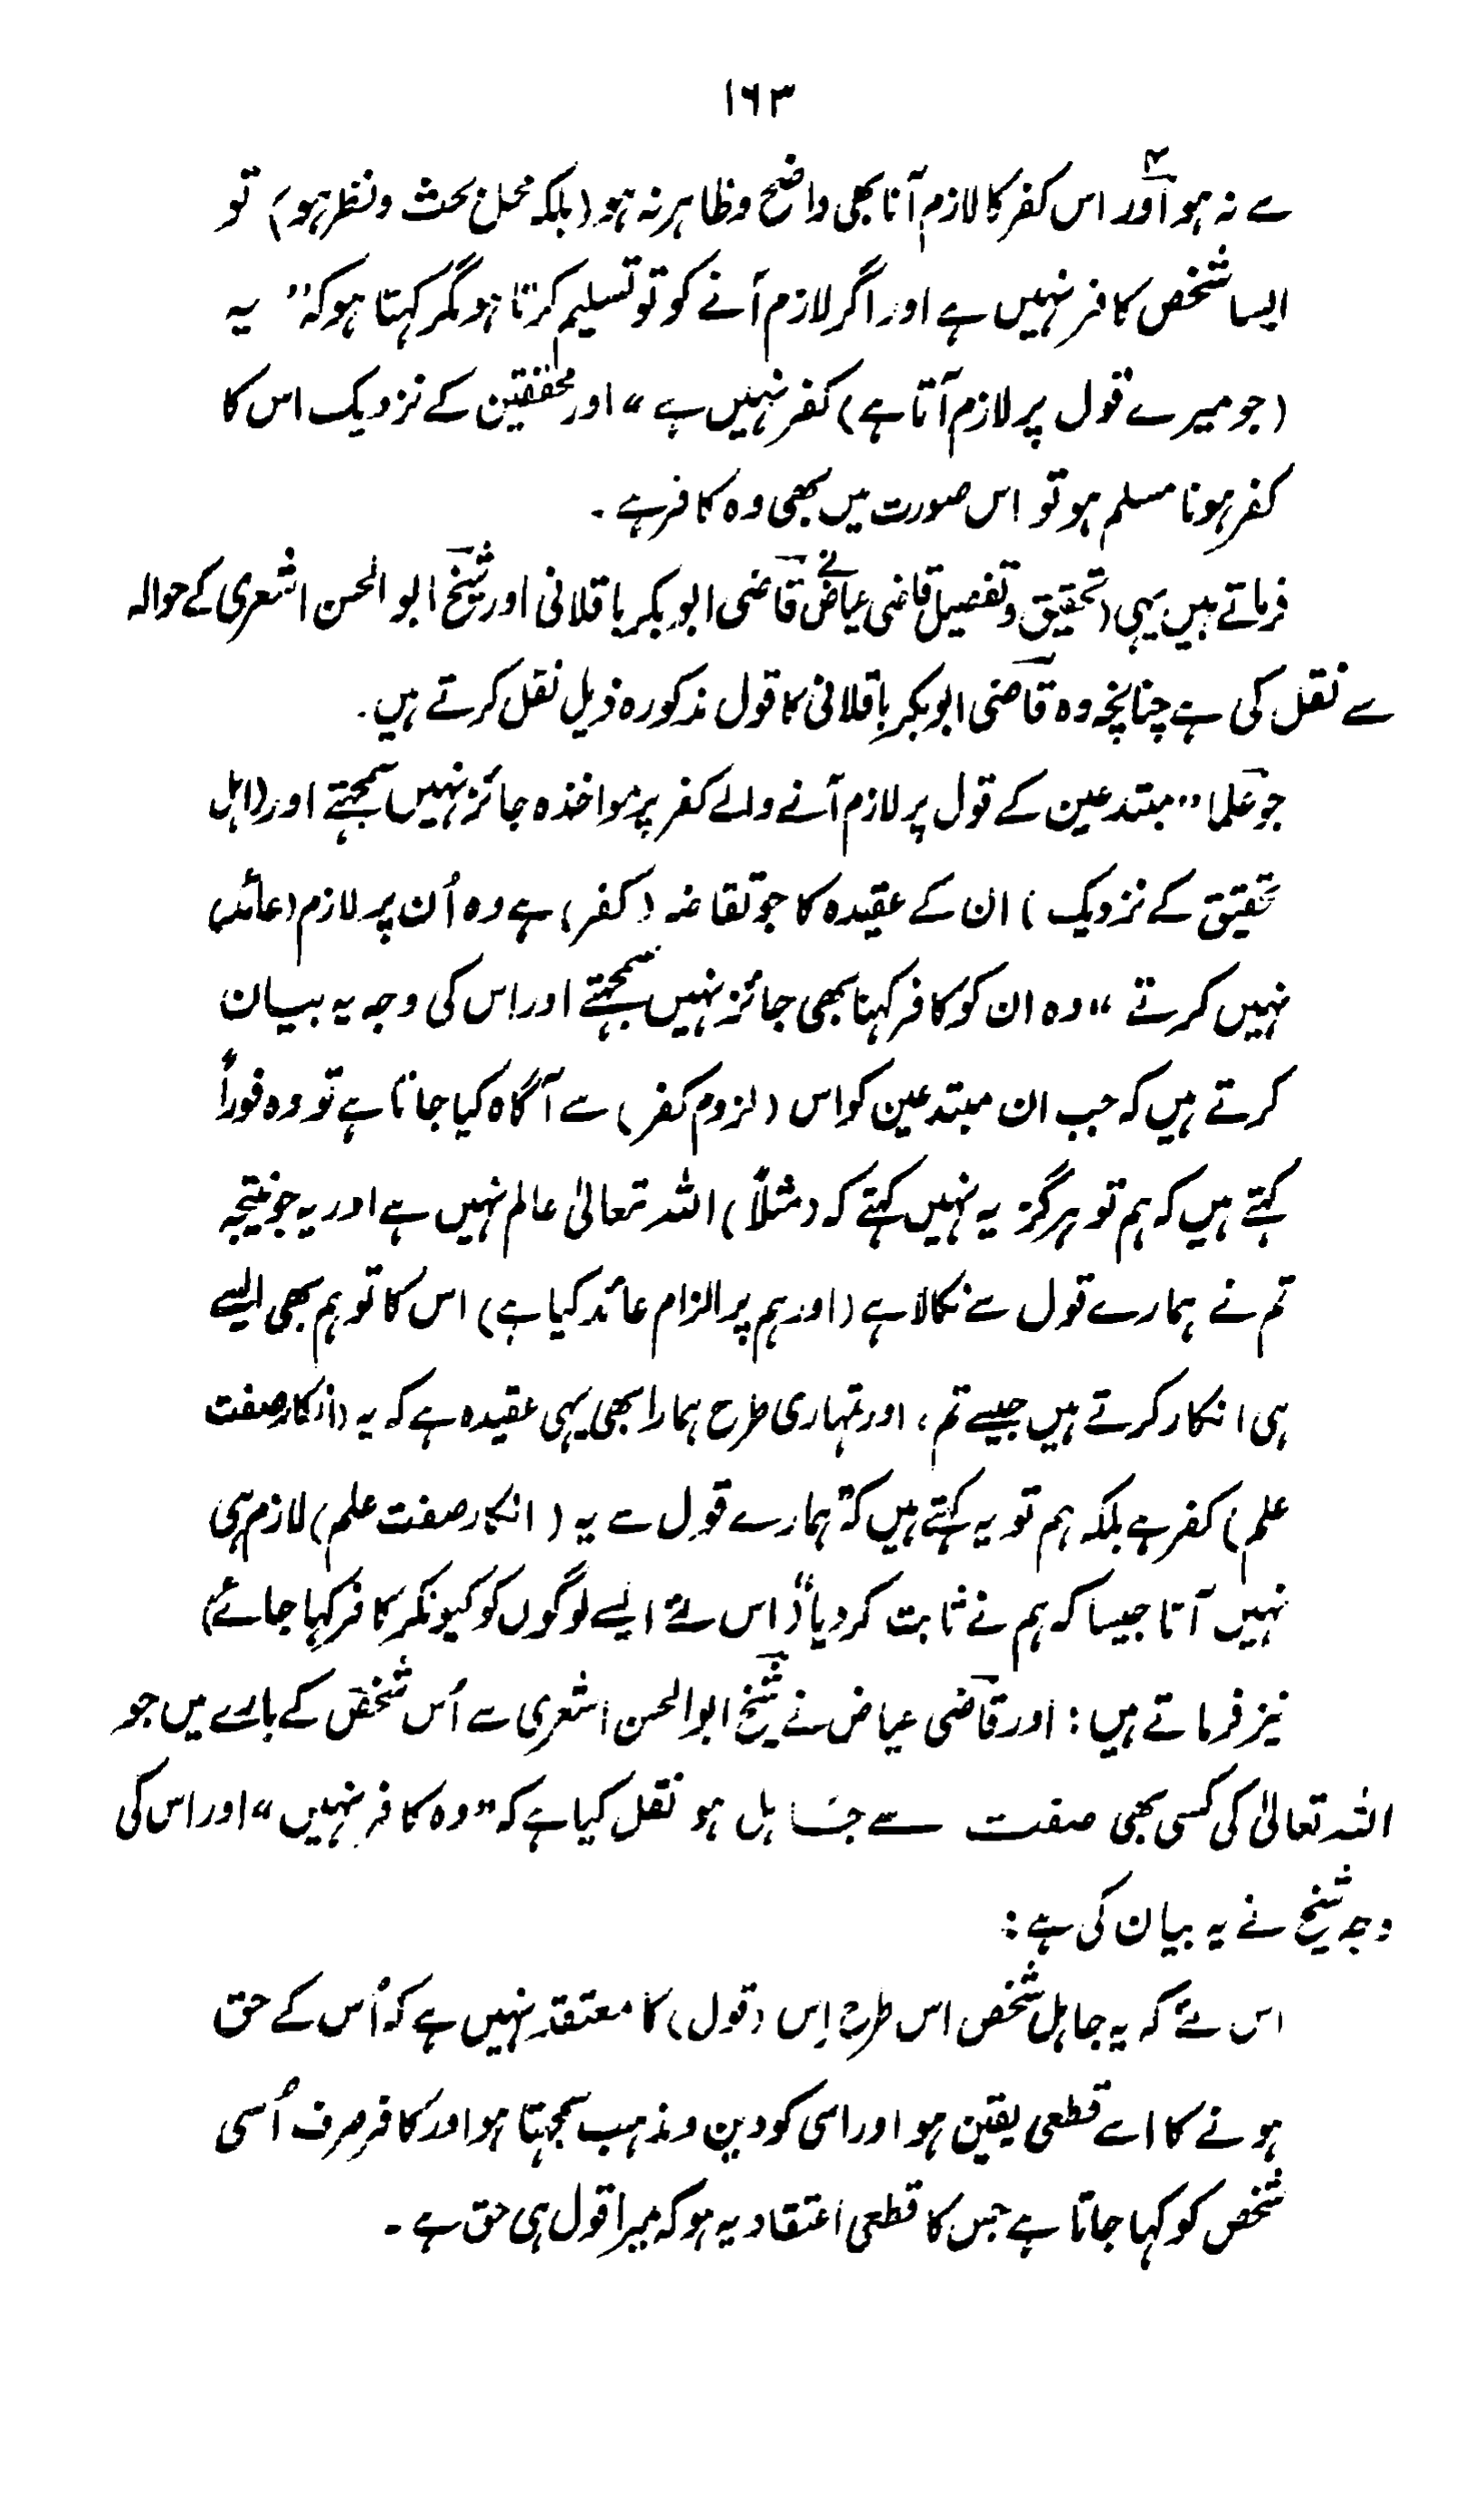 ۱۶۳
سے نہ ہو اور اس کفر کا لازم آنا بھی واضح و ظاہر نہ ہو (بلکہ محل بحث و نظر ہو) تو
ایسا شخص کافر نہیں ہے اور اگر لازم آنے کو تو تسلیم کرتا ہو مگر کہتا ہو کہ "یہ
(جو میرے قول پر لازم آتا ہے) کفر نہیں ہے" اور محققین کے نزدیک اس کا
کفر ہونا مسلم ہو تو اس صورت میں بھی وہ کافر ہے۔
فرماتے ہیں یہی (تحقیق و تفصیل قاضی عیاض نے قاضی ابوبکر باقلانی اور شیخ ابو الحسن اشعری کے حوالہ
سے نقل کی ہے چنانچہ وہ قاضی ابوبکر باقلانی کا قول مذکورہ ذیل نقل کرتے ہیں۔
جو علما "مبتدعین کے قول پر لازم آنے والے کفر پر مواخذہ جائز نہیں سمجھتے اور (اہل
تحقیق کے نزدیک) ان کے عقیدہ کا جو تقاضہ (کفر) ہے وہ اُن پر لازم (عائد)
نہیں کرتے" وہ ان کو کافر کہنا بھی جائز نہیں سمجھتے اور اس کی وجہ یہ بیان
کرتے ہیں کہ جب ان مبتدعین کو اس (لزوم کفر) سے آگاہ کیا جاتا ہے تو وہ فوراً
کہتے ہیں کہ ہم تو ہرگز یہ نہیں کہتے کہ (مثلاً) اللہ تعالیٰ عالم نہیں ہے اور یہ جو نتیجہ
تم نے ہمارے قول سے نکالا ہے (اور ہم پر الزام عائد کیا ہے) اس کا تو ہم بھی ایسے
ہی انکار کرتے ہیں جیسے تم، اور تمہاری طرح ہمارا بھی یہی عقیدہ ہے کہ یہ (انکار صفت
علم) کفر ہے بلکہ ہم تو یہ کہتے ہیں کہ "ہمارے قول سے یہ (انکار صفت علم) لازم ہی
نہیں آتا جیسا کہ ہم نے ثابت کر دیا" (اس لئے ایسے لوگوں کو کیونکر کافر کہا جائے)
نیز فرماتے ہیں: اور قاضی عیاض نے شیخ ابوالحسن اشعری سے اُس شخص کے بارے میں جو
اللہ تعالیٰ کی کسی بھی صفت سے جاہل ہو نقل کیا ہے کہ "وہ کافر نہیں" اور اس کی
وجہ شیخ نے یہ بیان کی ہے:
اس لئے کہ یہ جاہل شخص اس طرح اِس (قول) کا معتقد نہیں ہے کہ اُس کے حق
ہونے کا اسے قطعی یقین ہو اور اسی کو دین و مذہب سمجھتا ہو اور کافر صرف اُسی
شخص کو کہا جاتا ہے جس کا قطعی اعتقاد یہ ہو کہ میرا قول ہی حق ہے۔